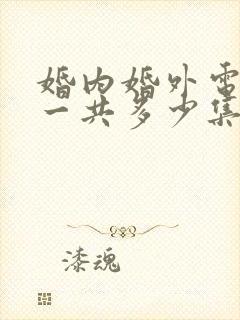 婚内婚外电
一共多少集
漆魂